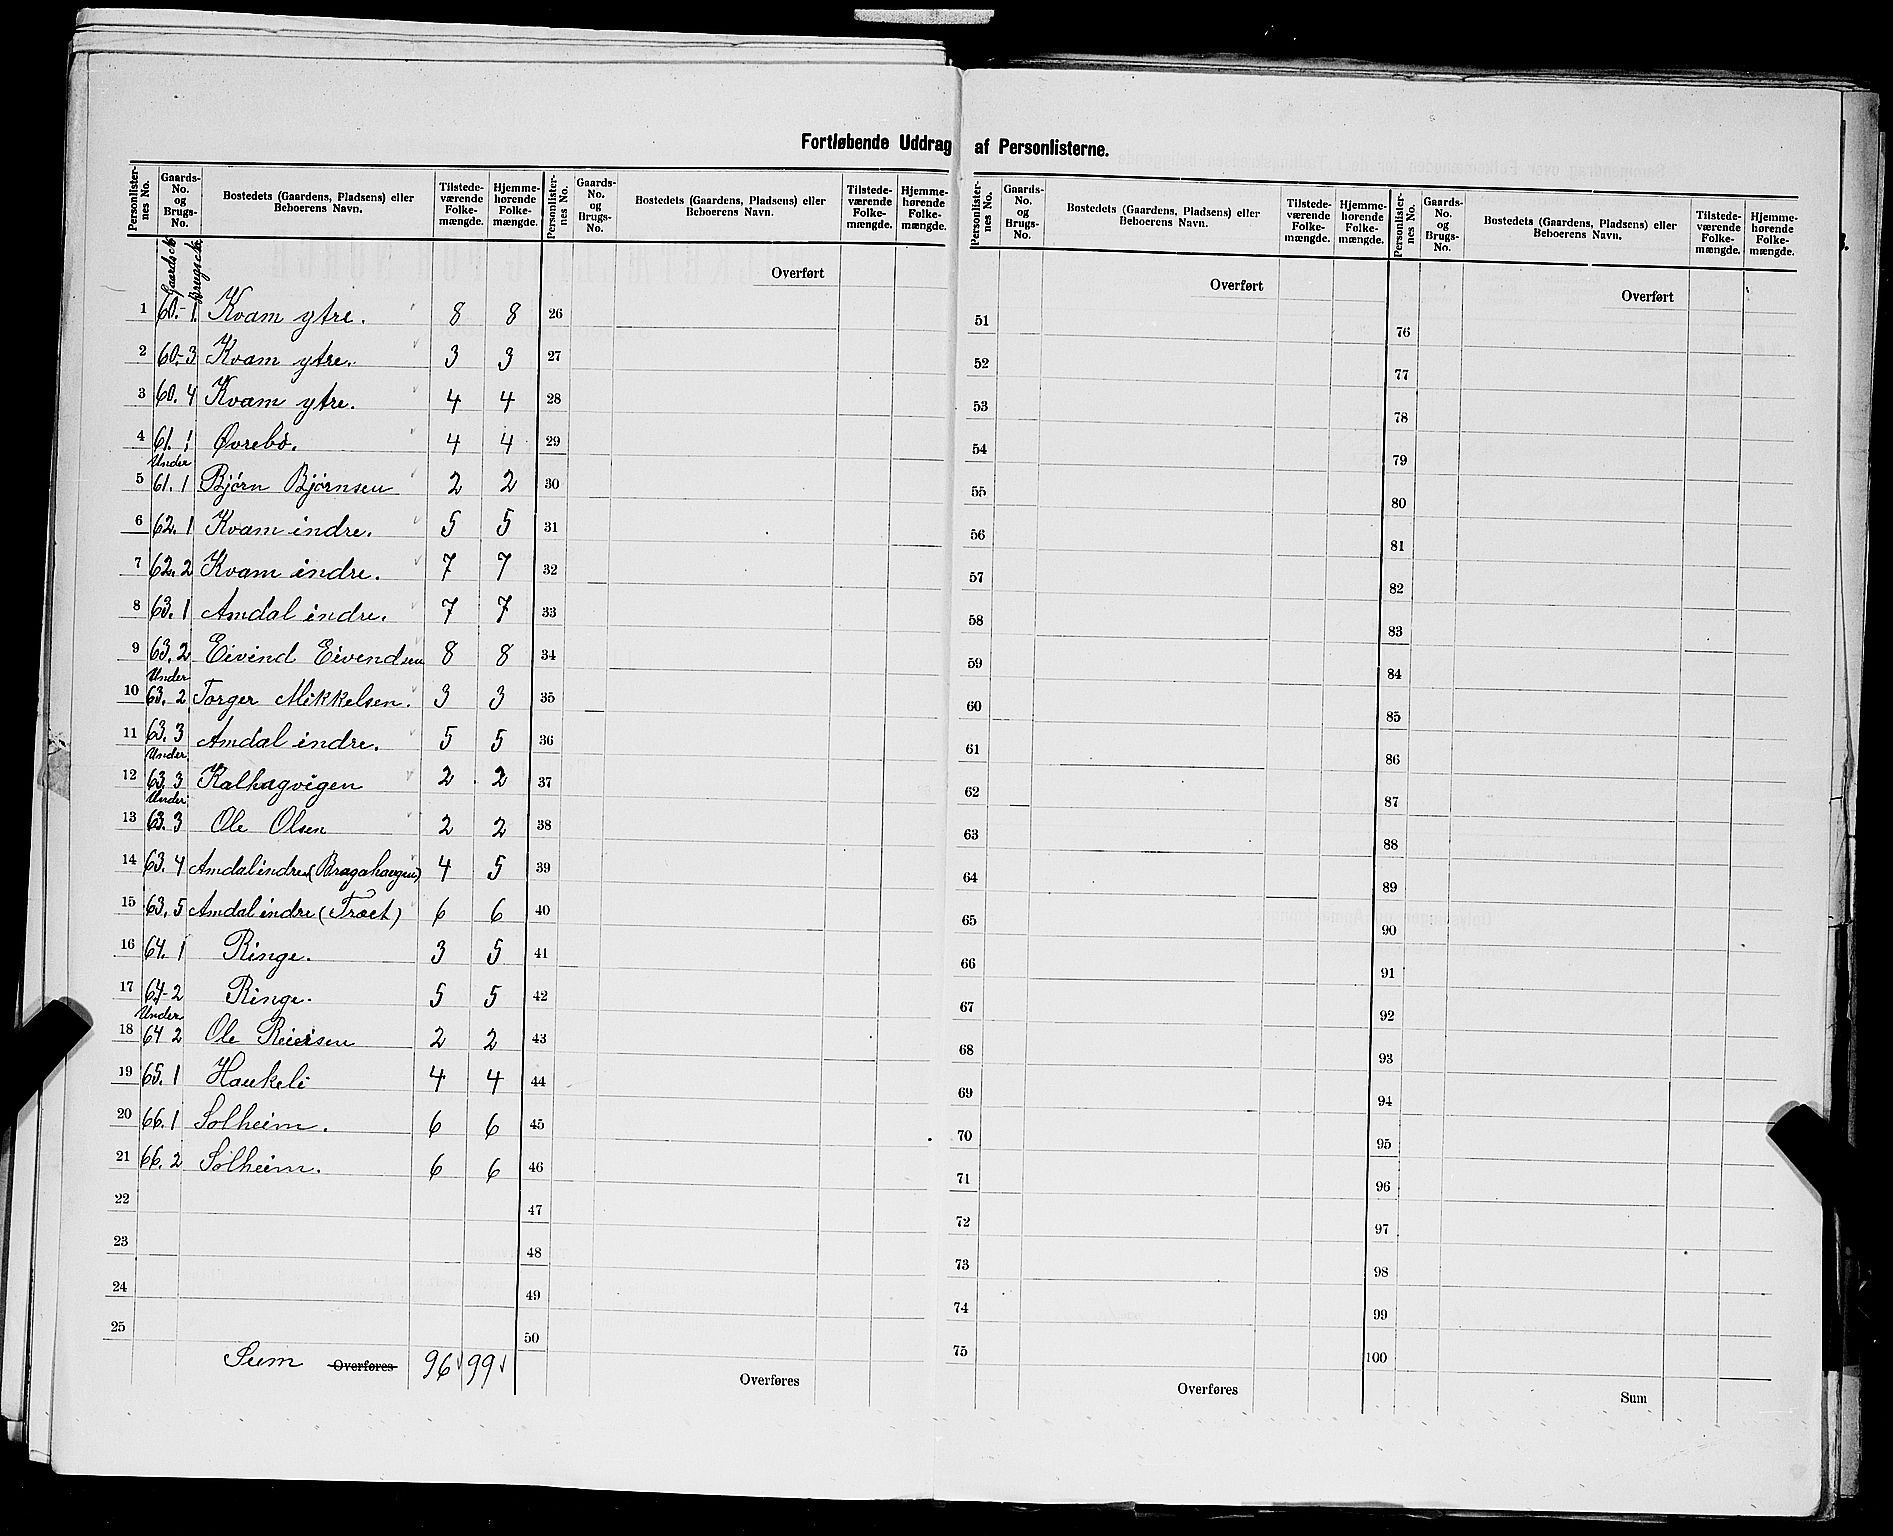 Fortløbende Uddrag af Personlisterne.
Personlister-nes No. Gaards-No. og Brugs-No. Bostedets (Gaardens, Pladsens) eller Beboerens Navn. Tilstede-værende Folke-mængde. Hjemme-hørende Folke-mængde.
Personlister-nes No. Gaards-No. og Brugs-No. Bostedets (Gaardens, Pladsens) eller Beboerens Navn. Tilstede-værende Folke-mængde. Hjemme-hørende Folke-mængde.
Personlister-nes No. Gaards-No. og Brugs-No. Bostedets (Gaardens, Pladsens) eller Beboerens Navn. Tilstede-værende Folke-mængde. Hjemme-hørende Folke-mængde.
Personlister-nes No. Gaards-No. og Brugs-No. Bostedets (Gaardens, Pladsens) eller Beboerens Navn. Tilstede-værende Folke-mængde. Hjemme-hørende Folke-mængde.
1 60.-1. Kvam ytre. 8 8
2 60.-3 Kvam ytre. 3 3
3 60.4 Kvam ytre. 4 4
4 61.1 Øvrebø. 4 4
Under
5 61.1 Bjørn Bjørnsen 2 2
6 62.1 Kvam indre. 5 5
7 62.2 Kvam indre. 7 7
8 63.1 Amdal indre. 7 7
9 63.2 Eivind Eivendsen 8 8
Under
10 63.2 Torger Mikkelsen. 3 3
11 63.3 Amdal indre. 5 5
Under
12 63.3 Kalhagvigen 2 2
Under
13 63.3 Ole Olsen 2 2
14 63.4 Amdal indre (Bragahaugen) 4 5
15 63.5 Amdal indre (Træet) 6 6
16 64.1 Ringe. 3 5
17 64-2 Ringe. 5 5
Under
18 64 2 Ole Reiersen 2 2
19 65.1 Haukeli 4 4
20 66.1 Solheim. 6 6
21 66.2 Solheim. 6 6
22
23
24
25
Sum Overføres 96 99
Overført
26
27
28
29
30
31
32
33
34
35
36
37
38
39
40
41
42
43
44
45
46
47
48
49
50
Overføres
Overført
51
52
53
54
55
56
57
58
59
60
61
62
63
64
65
66
67
68
69
70
71
72
73
74
75
Overføres
Overført
76
77
78
79
80
81
82
83
84
85
86
87
88
89
90
91
92
93
94
95
96
97
98
99
100
Sum